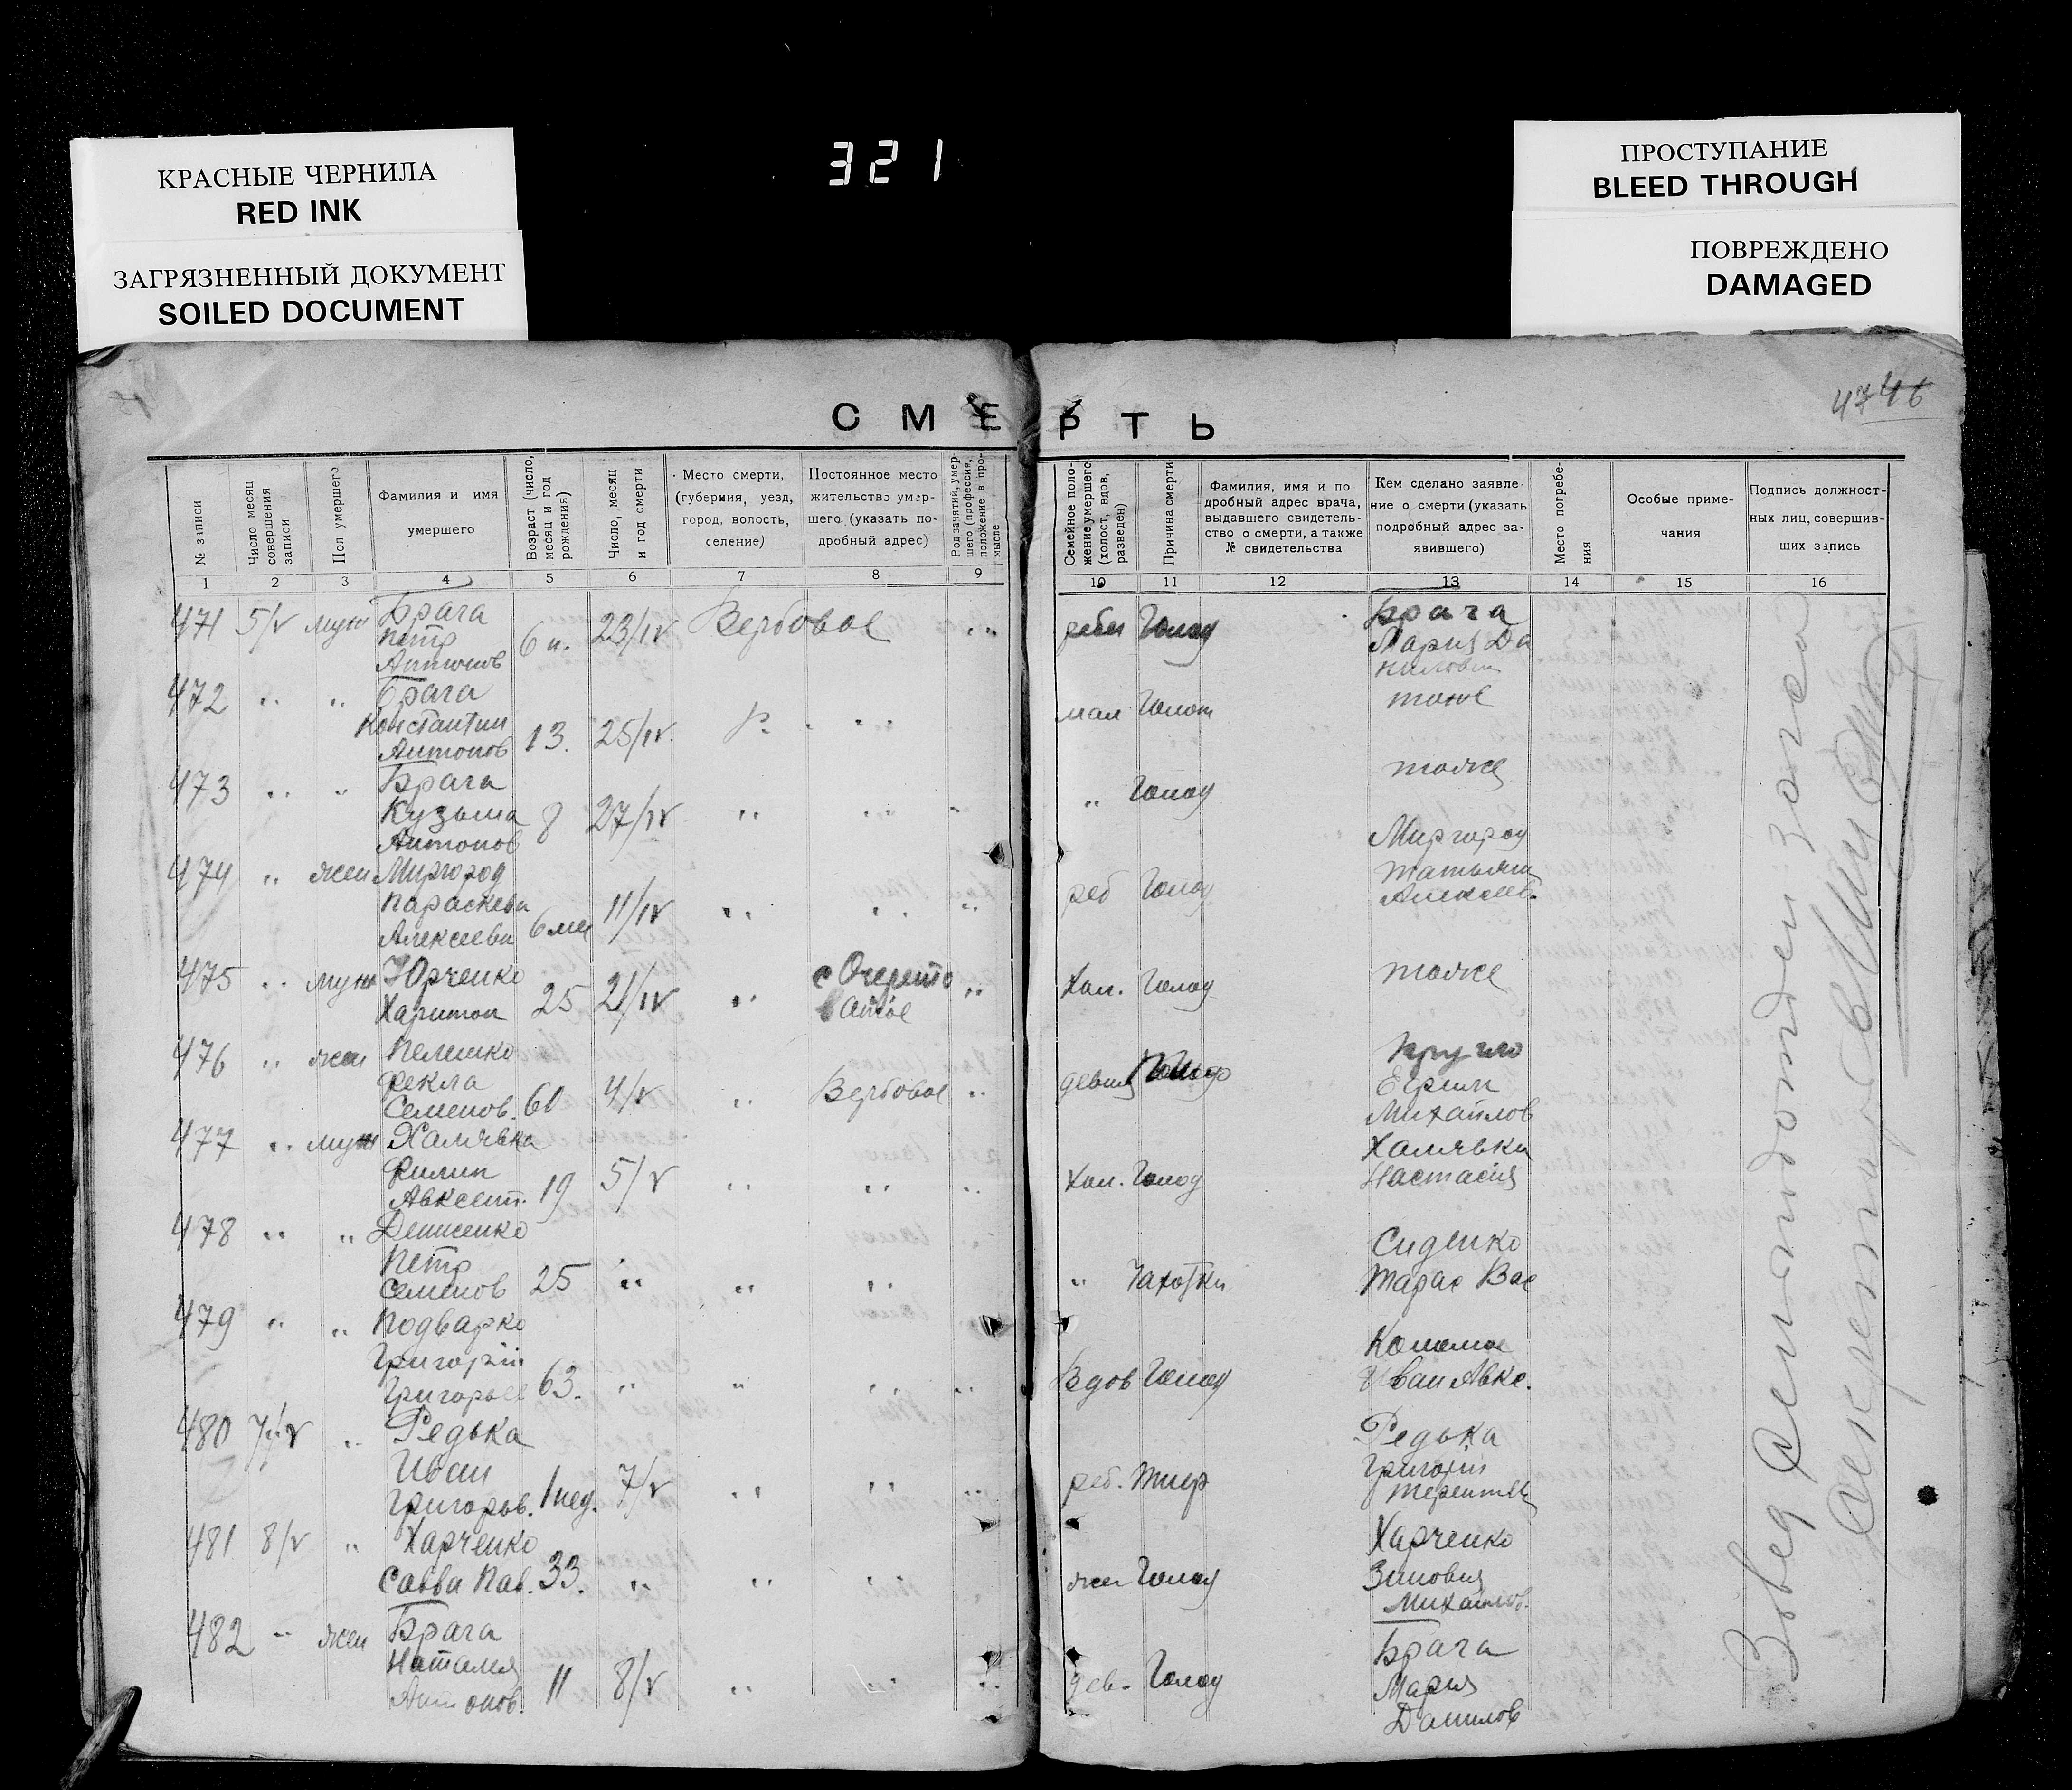 321
КРАСНЫЕ ЧЕРНИЛА
RED INK
ЗАГРЯЗНЕННЫЙ ДОКУМЕНТ
SOILED DOCUMENT
ПРОСТУПАНИЕ
BLEED THROUGH
ПОВРЕЖДЕНО
DAMAGED
4746
СМЕРТЬ
№ записи
Число месяц
совершения
записи
Пол умершего
Фамилия и имя
умершего
Возраст (число,
месяц и год
рождения)
Число, месяц
и год смерти
Место смерти,
(губерния, уезд,
город, волость,
селение)
Постоянное место
жительство умер-
шего (указать по-
дробный адрес)
Род занятий, умер-
шего (профессия,
положение в про-
мысле
Семейное поло-
жение умершего
(холост, вдов,
разведен)
Причина смерти
Фамилия, имя и по
дробный адрес врача,
выдавшего свидетель-
ство о смерти, а также
№ свидетельства
Кем сделано заявле-
ние о смерти (указать
подробный адрес за-
явившего)
Место погребе-
ния
Особые приме-
чания
Подпись должност-
ных лиц, совершив-
ших запись
1 2 3 4 5 6 7 8 9 10 11 12 13 14 15 16
471 5/V муж Брага 23/IV Вербовое Голод Брага
Петр 6 Мария Да
Антонов ниловн
472 " " Брага мал тоже
Константин
Антонов 13. 25/IV.
473 " " Брага тоже
Кузьма 8 27/IV " " " " Голод
Антонов
474 " жен Миргород Миргород
Параскева 11/IV " " " реб Голод Татьяна
Алексеева 6 мец Алексеев.
475 " муж Юрченко с Очерето " Хол. Голод тоже
Харитон 25 21/IV " ватое
476 " жен Пелешко
Фекла Вербовое " Ефрим
Семенов. 60 4/V " Михайлов
477 " муж Халявка Халявка
Филип 5/V " " " Хол. Голод Настасия
Авксент. 19
478 " " Денисенко Сиденко
Петр " " " " Чахотки Тарас Вас
Семенов 25
479 " " Подварко
Григорій
Григорьев 63. " " " " Вдов Голод Иван Авкс.
480 7/V " Редька Редька
Иван 7/V " " " реб. Григорій
Григоров. 1 нед. Терентьев
481 8/V " Харченко Харченко
Савва Пав. 33. " " " жен Голод Зиновия
Михайлов.
482 " жен Брага Брага
Наталия 11 8/V " " " дев. Голод Мария
Антонов. Данилов